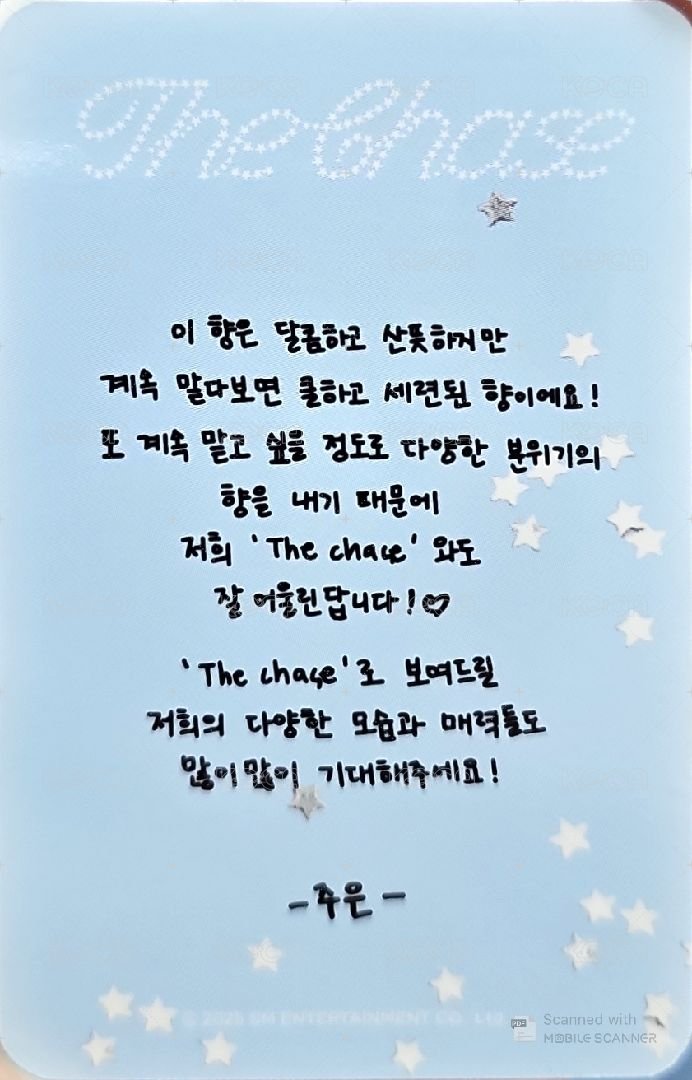 The Chase
이 향은 달콤하고 산뜻하지만
계속 맡다보면 쿨하고 세련된 향이에요!
또 계속 맡고 싶을 정도로 다양한 분위기의
향을 내기 때문에
저희 'The chase' 와도
잘 어울린답니다!♡
'The chase'로 보여드릴
저희의 다양한 모습과 매력들도
많이많이 기대해주세요!
-주은-
© 2025 SM ENTERTAINMENT CO., Ltd.
PDF Scanned with
MOBILE SCANNER